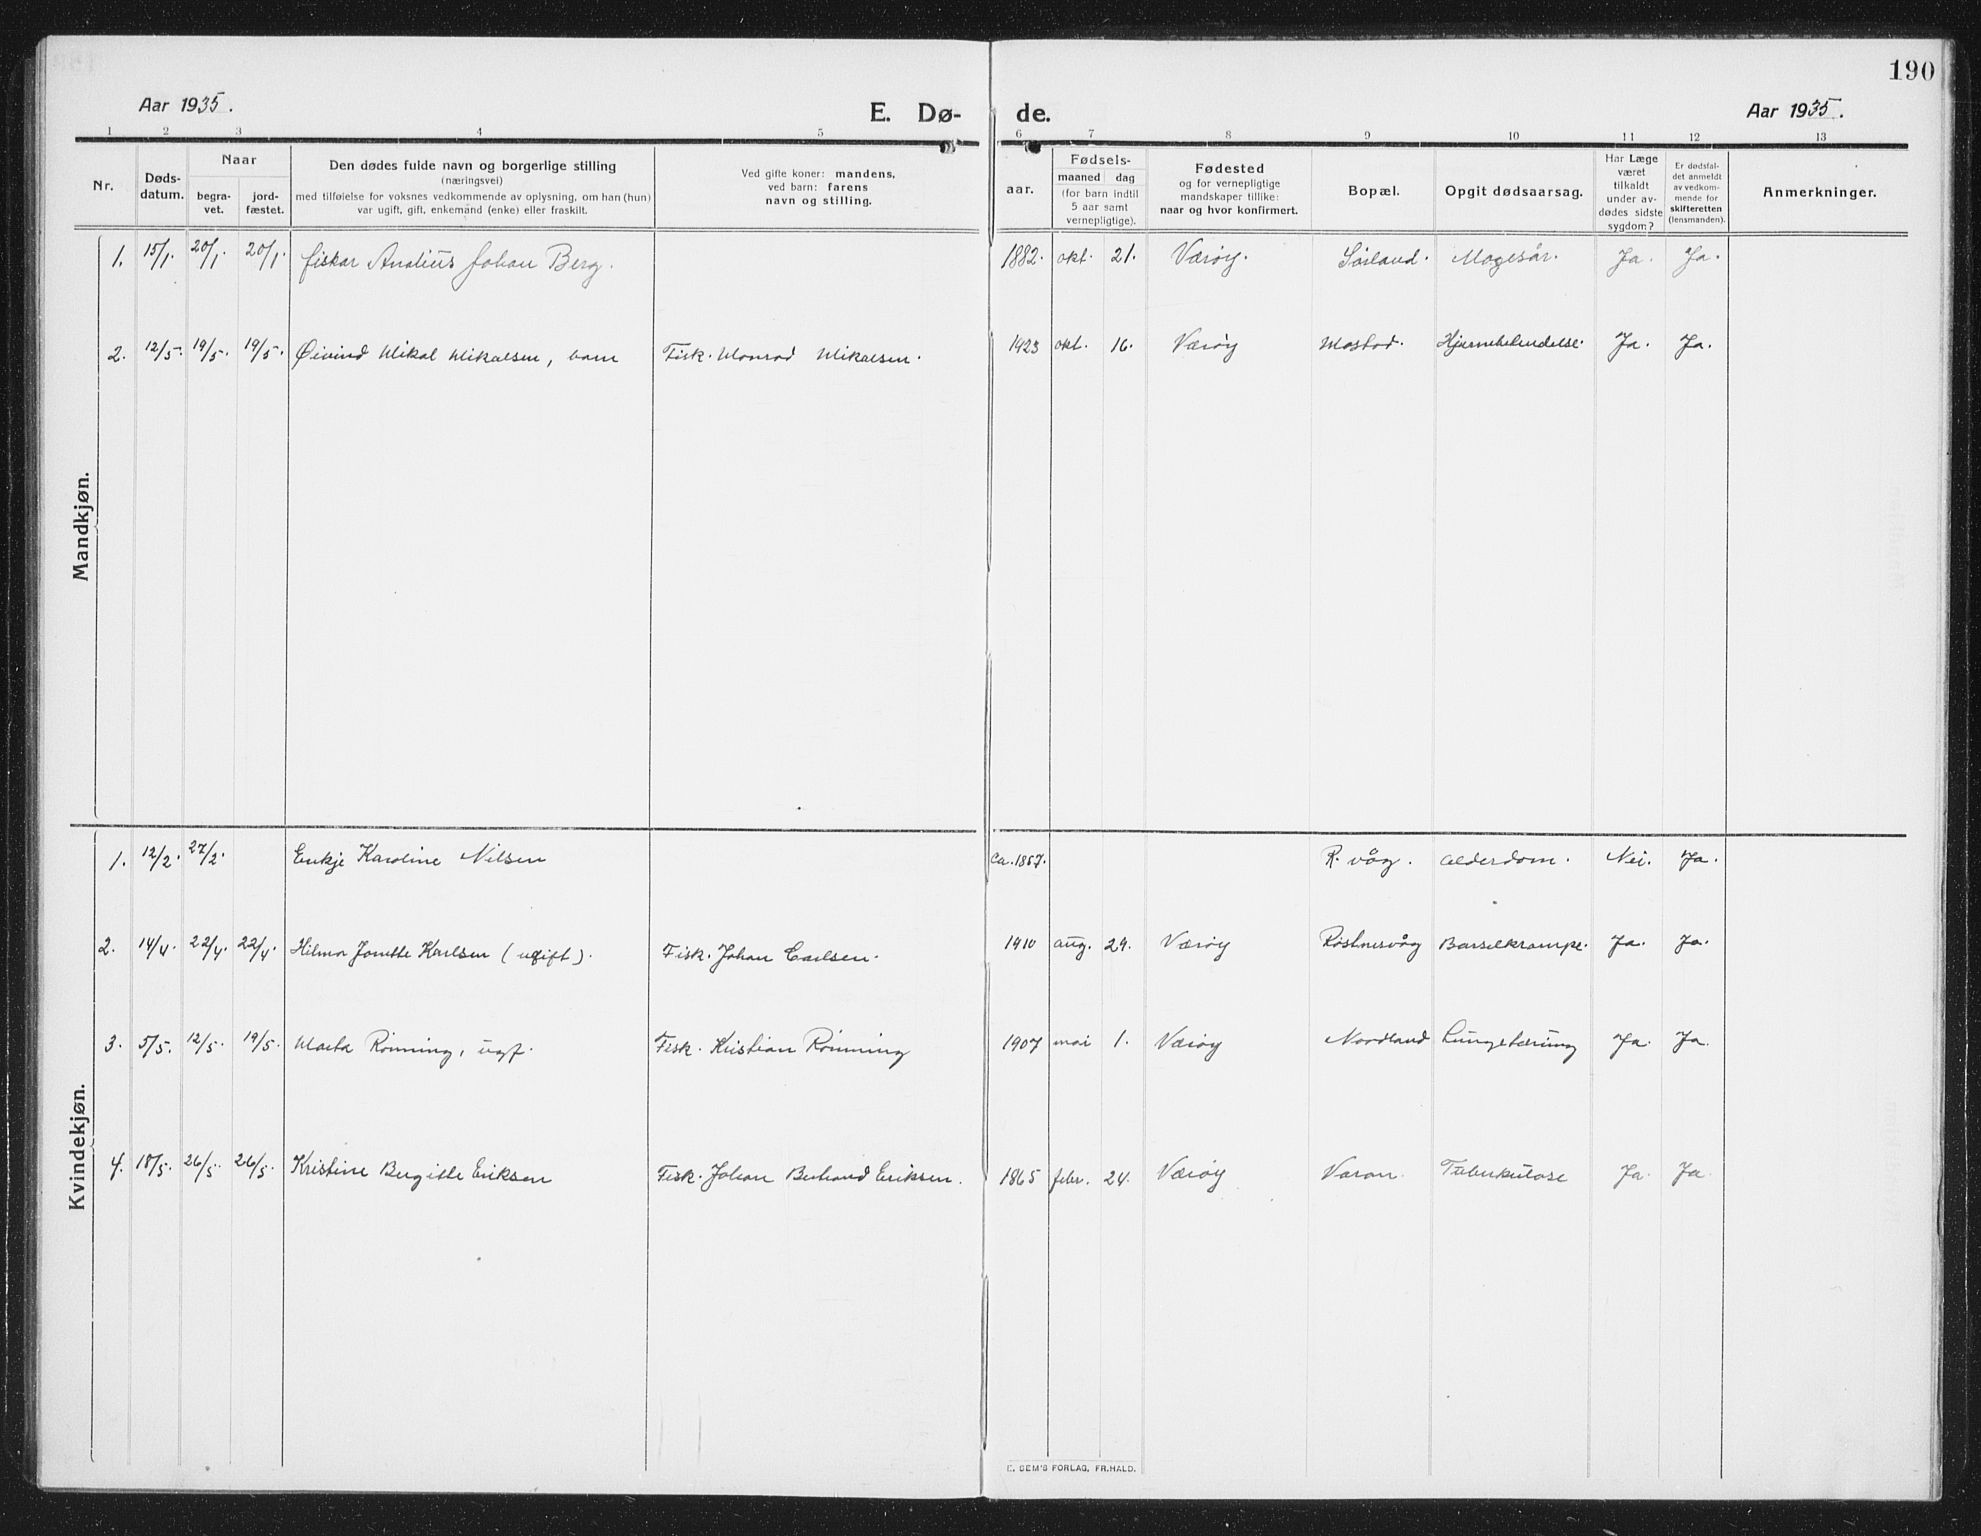 190
Aar 1935.
E. Dø-
de.
Aar 1935.
1 2 3 4 5 6 7 8 9 10 11 12 13
Nr.
Døds-
datum.
Naar
begra-
vet.
jord-
fæstet.
Den dødes fulde navn og borgerlige stilling
(næringsvei)
med tilføielse for voksnes vedkommende av oplysning, om han (hun)
var ugift, gift, enkemand (enke) eller fraskilt.
Ved gifte koner: mandens,
ved barn: farens
navn og stilling.
aar.
Fødsels-
maaned dag
(for barn indtil
5 aar samt
vernepligtige).
Fødested
og for vernepligtige
mandskaper tillike:
naar og hvor konfirmert.
Bopæl.
Opgit dødsaarsag.
Har Læge
været
tilkaldt
under av-
dødes sidste
sygdom?
Er dødsfal-
det anmeldt
av vedkom-
mende for
skifteretten
(lensmanden).
Anmerkninger.
Mandkjøn.
1. 15/1. 20/1. 20/1. fiskar Analius Johan Berg. 1882. okt. 21. Værøy. Sørland. Magesår. Ja. Ja.
2. 12/5. 19/5. 19/5. Øivind Mikal Mikalsen, barn Fisk. Monrad Mikalsen. 1923 okt. 16. Værøy Mostad. Hjernebetendelse. Ja. Ja.
Kvindekjøn.
1. 12/2. 27/2. Enkje Karoline Nilsen ca. 1857. R. våg. alderdom. Nei. Ja.
2. 14/4. 22/4. 22/4. Hilma Jonette Karlsen (ugift). Fisk. Johan Carlsen. 1910 aug. 29. Værøy Røstnesvåg Barselkrampe. Ja. Ja.
3. 5/5. 12/5. 19/5. Marta Rønning, ugf. Fisk. Kristian Rønning 1907 mai 1. Værøy Nordland Lungetæring Ja. Ja.
4. 18/5. 26/5. 26/5. Kristine Bergitte Eriksen Fisk. Johan Eriksen. 1865 febr. 24. Værøy Tuberkulose Ja. Ja.
E. SEM'S FORLAG, FR.HALD.